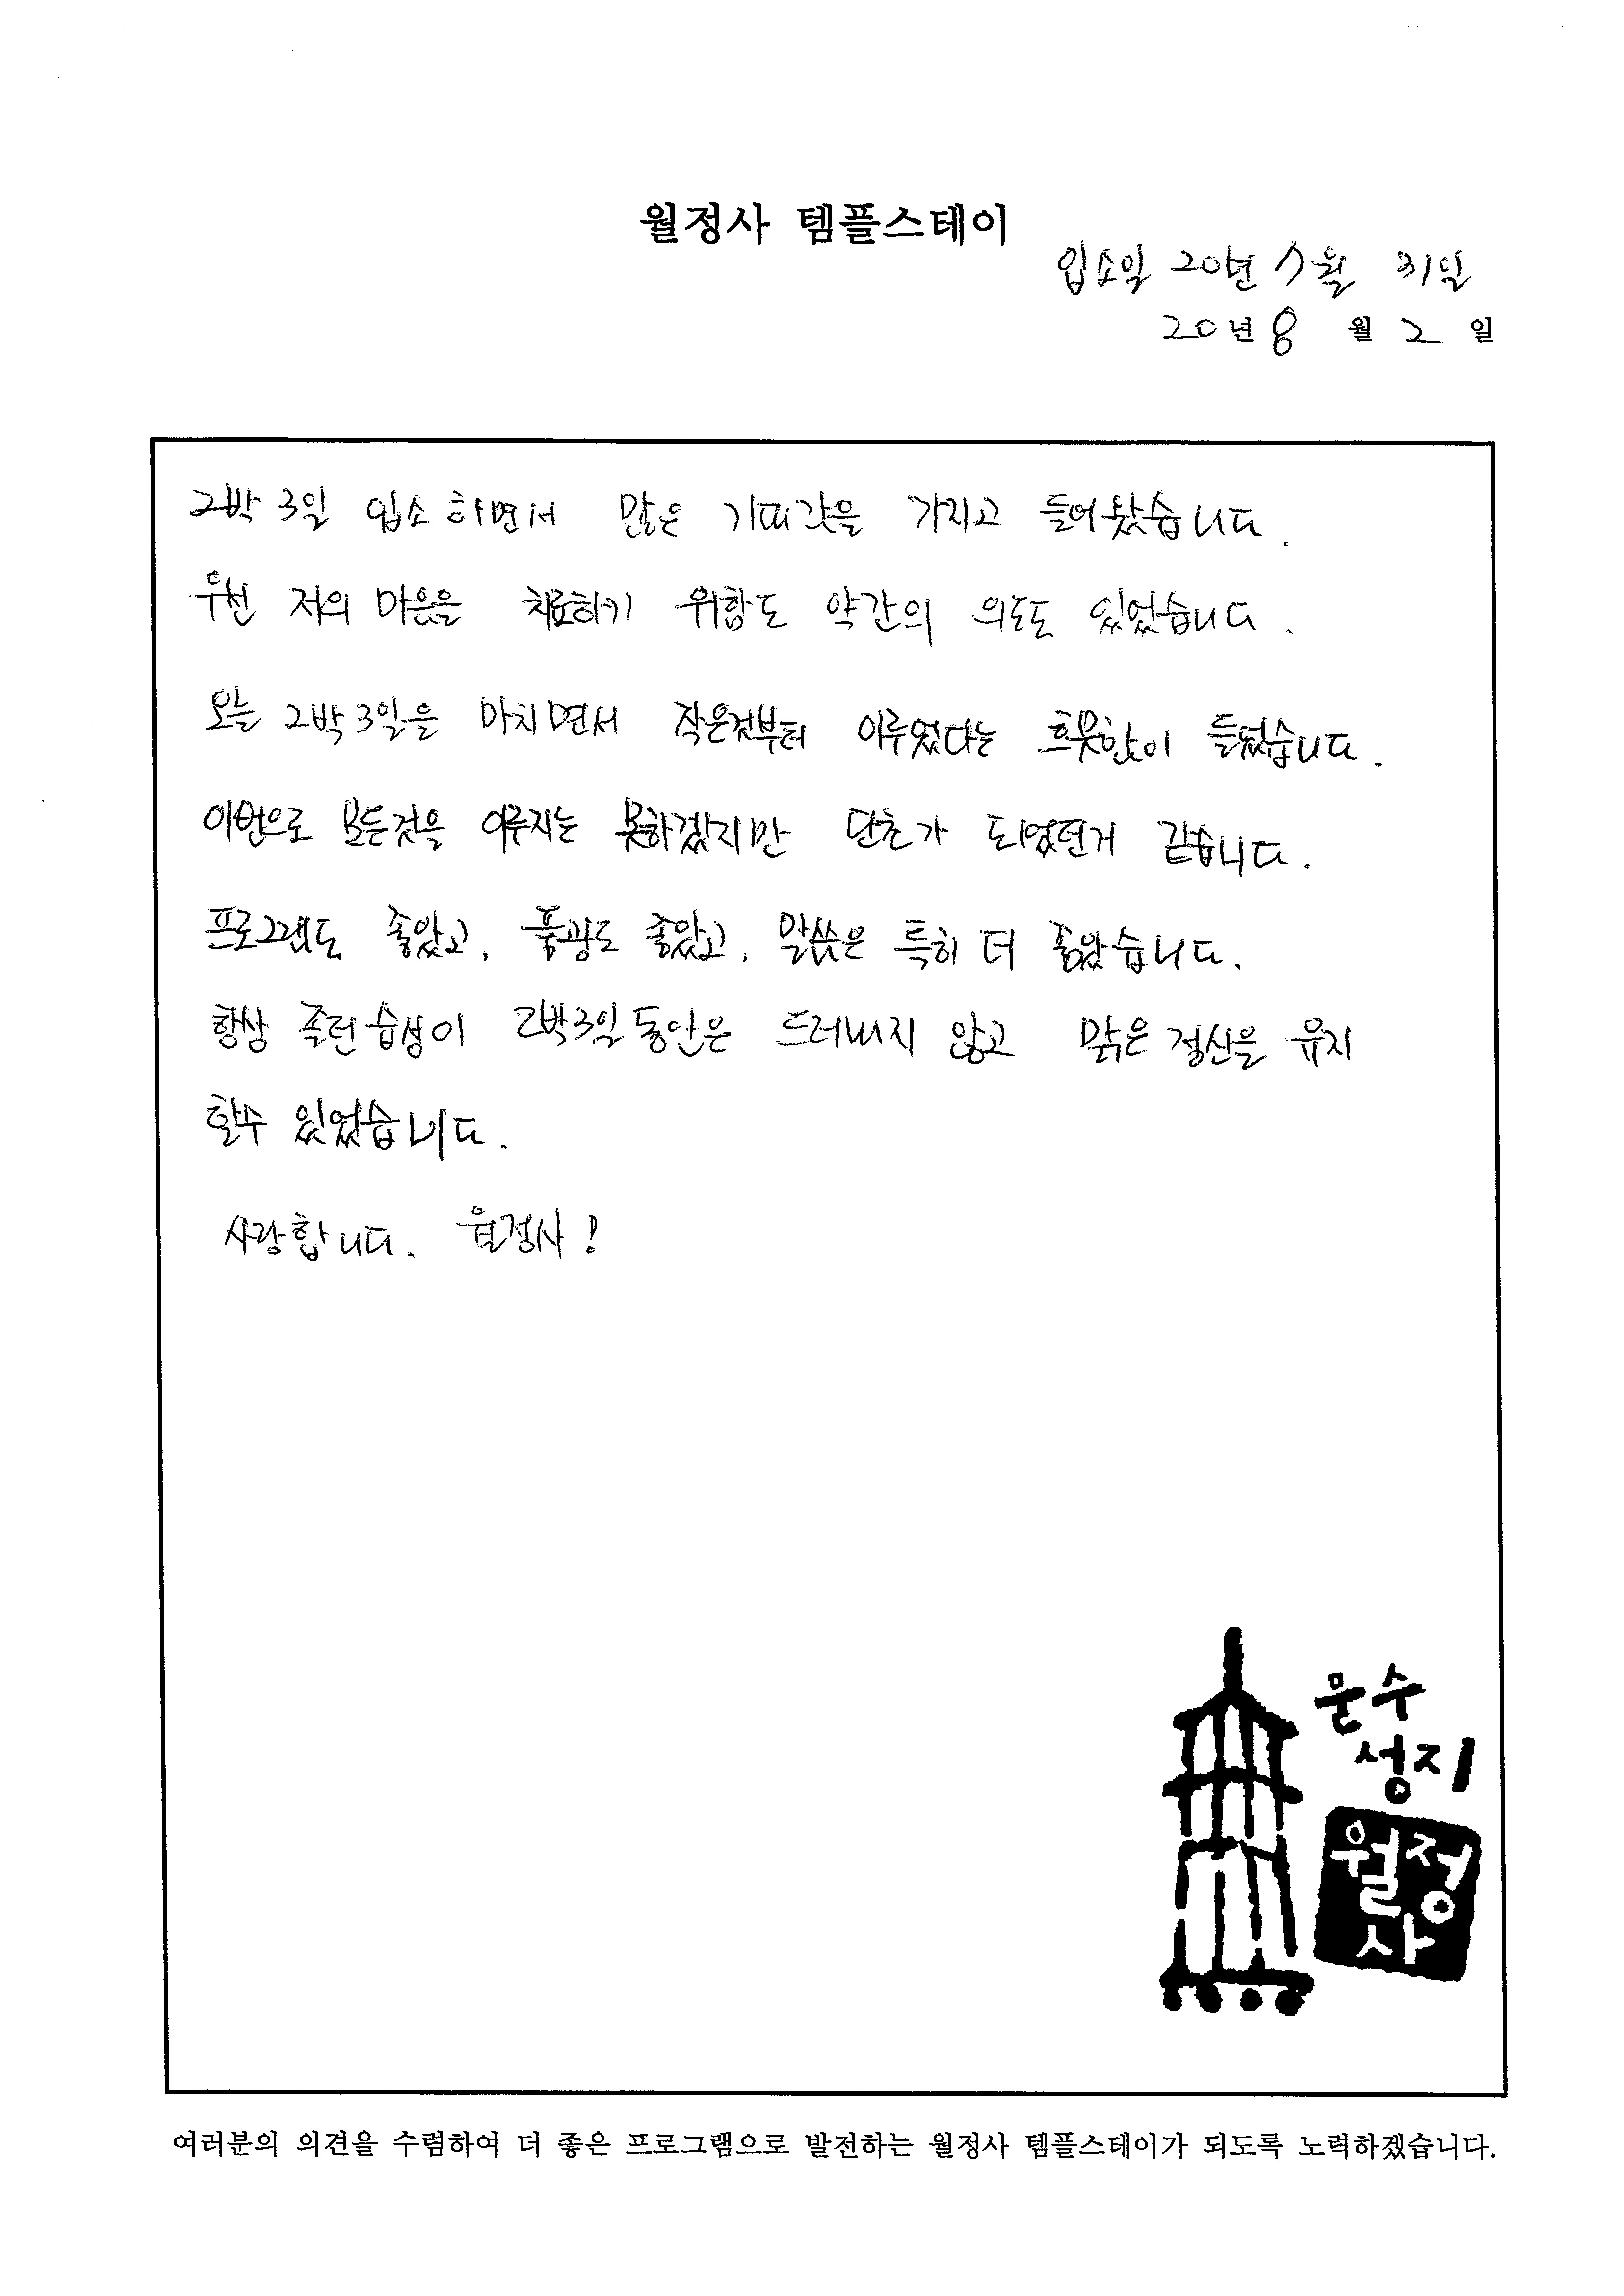 월정사 템플스테이
입소일 20년 7월 31일
20년 8 월 2 일
2박 3일 입소하면서 많은 기대감을 가지고 들어왔습니다.
우선 저의 마음을 치료하기 위함도 약간의 의도도 있었습니다.
오늘 2박 3일을 마치면서 작은것부터 이루었다는 흐뭇함이 들었습니다.
이번으로 모든것을 이루지는 못하겠지만 단초가 되었던거 같습니다.
프로그램도 좋았고, 풍광도 좋았고, 말씀은 특히 더 좋았습니다.
항상 졸던 습성이 2박3일 동안은 드러내지 않고 맑은 정신을 유지
할수 있었습니다.
사랑합니다. 월정사!
문수
성지
월정
사
여러분의 의견을 수렴하여 더 좋은 프로그램으로 발전하는 월정사 템플스테이가 되도록 노력하겠습니다.